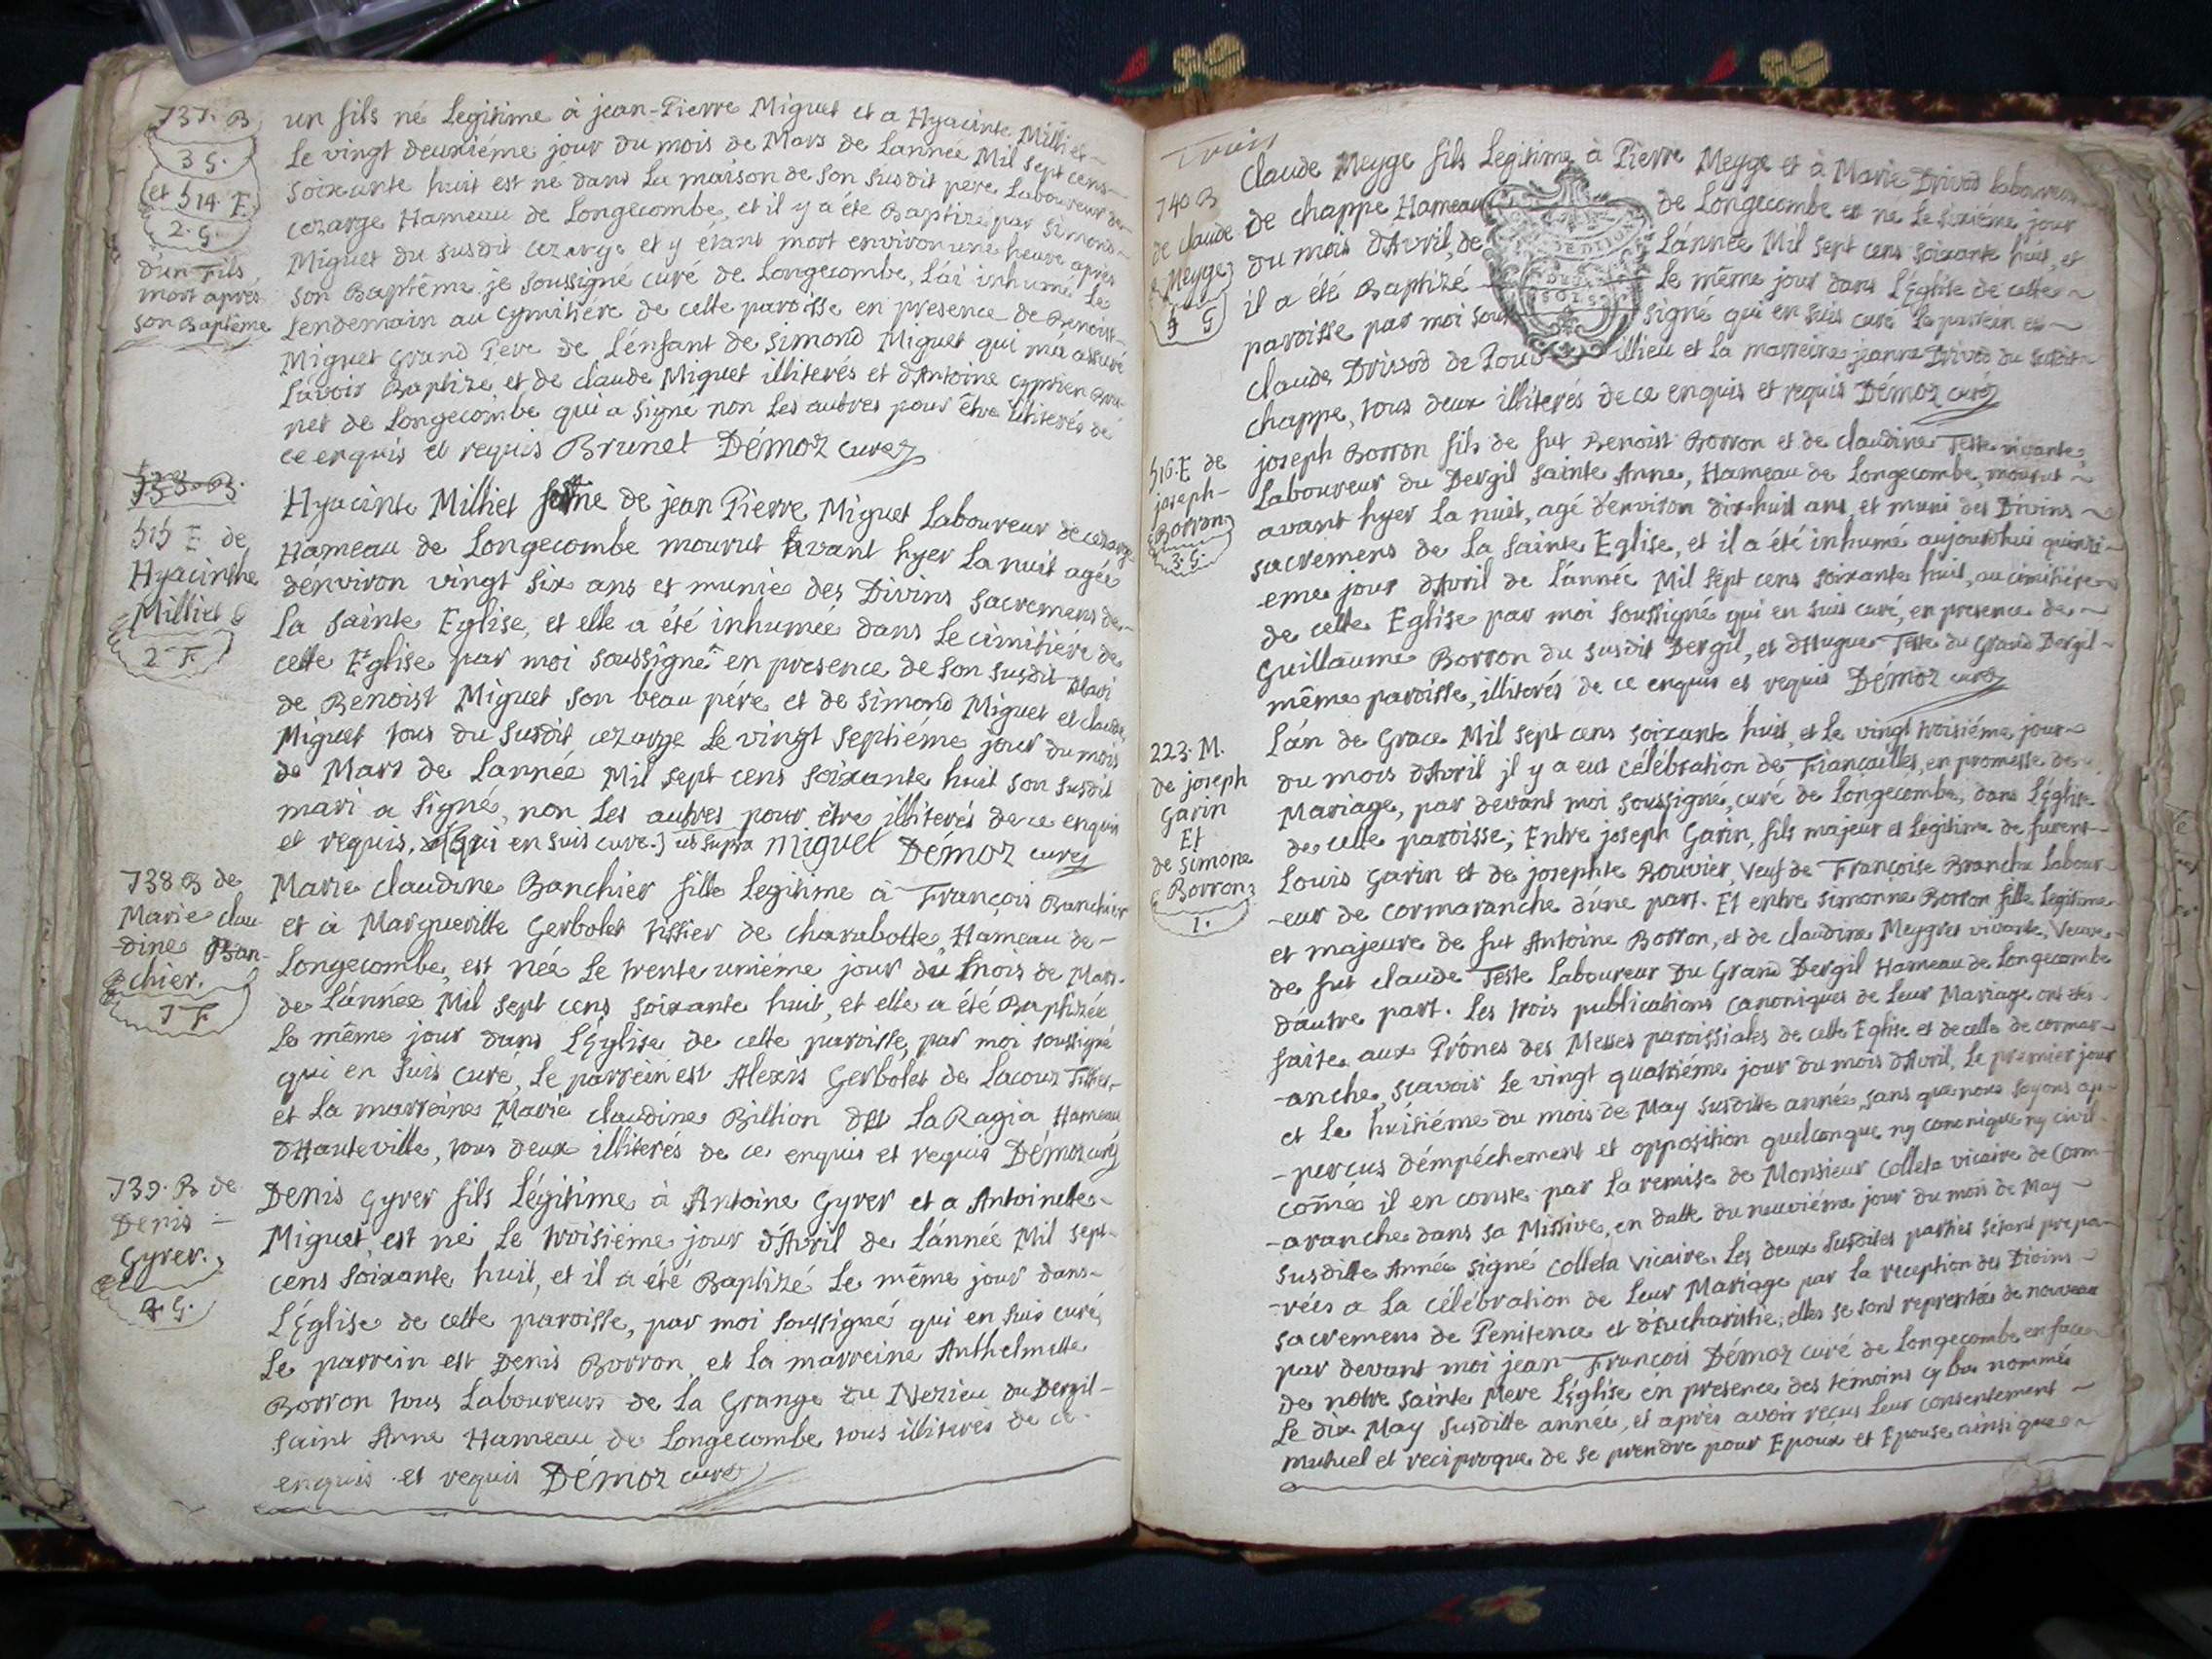 737. B
3 G.
et 514. E.
2. G.
d'un Fils
mort apres
son Baptême
un fils né Legitime à jean-Pierre Miguet et a Hyacinte Milliet
Le vingt deuxiéme jour du mois de Mars de Lannée Mil sept cens
soixante huit est né dans La maison de son susdit pére Laboureur de
cezarge Hameau de Longecombe, et il y a été Baptizé par Simond
Miguet du susdit cezarge et y étant mort environ une heure après
son Baptême, je soussigné curé de Longecombe, L'ai inhumé Le
Lendemain au cymitiére de cette paroisse en presence de Benoist
Miguet Grand Pere de L'enfant de simond Miguet qui m'a assuré
L'avoir Baptize, et de claude Miguet illiterés et d'Antoine cyprien Bru-
net de Longecombe qui a signé non Les autres pour être illiterés de
ce enquis et requis Brunet Démoz curé
738. B.
515 E de
Hyacinthe
Milliet
2 F.
Hyacinte Milliet feme de jean Pierre Miguet Laboureur de cezarge
Hameau de Longecombe mourut avant hyer La nuit agée
d'environ vingt six ans et munie des Divins sacremens de
La sainte Eglise, et elle a été inhumée dans Le cimitiére de
cette Eglise par moi soussigné en presence de son susdit Mari
de Benoist Miguet son beau pére, et de simond Miguet et claude
Miguet tous du susdit cezarge Le vingt septiéme jour du mois
de Mars de Lannée Mil sept cens soixante huit son susdit
mari a signé, non Les autres pour etre illiterés de ce enquis
et requis, (qui en suis curé.) ut supra miguet Démoz curé
738 B de
Marie clau
-dine Ban-
chier.
1 F
Marie claudine Banchier fille Legitime à François Banchier
et à Marguerite Gerbolet tissier de charabotte, Hameau de-
Longecombe, est née Le trente uniéme jour du mois de Mars.
de L'année Mil sept cens soixante huit, et elle a été Baptizée
Le même jour dans L'Eglise de cette paroisse, par moi soussigné
qui en suis curé, Le parrein est Alexis Gerbolet de Lacoux Tissier,
et La marreine Marie claudine Billion de La Ragia Hameau
d'Hauteville, tous deux illiterés de ce enquis et requis Démoz curé
739. B de
Denis
Gyrer.
4. G.
Denis Gyrer fils Légitime à Antoine Gyrer et a Antoinette-
Miguet, est né Le troisieme jour d'Avril de L'année Mil sept-
cens soixante huit, et il a été Baptizé Le même jour dans-
L'Eglise de cette paroisse, par moi soussigné qui en suis curé,
Le parrein est Denis Borron et La marreine Anthelmette
Borron tous Laboureurs de La Grange du Nezieu du Dergil-
saint Anne Hameau de Longecombe tous illiterés de ce
enquis et requis Démoz curé
Trois
740 B
de claude
Meyge
5 G
Claude Meyge fils Legitime à Pierre Meyge et à Marie Drivod Laboureur
de chappe Hameau de Longecombe est né Le sixiéme jour
du mois d'Avril, de L'année Mil sept cens soixante huit, et
il a été Baptizé Le même jour dans L'Eglise de cette
paroisse par moi sous signé qui en suis curé Le parrein est
claude Drivod de illieu et La marreine jeanne Drivod du susdit
chappe, tous deux illiterés de ce enquis et requis Démoz curé
516. E de
joseph-
Borron
3. G.
joseph Borron fils de fut Benoist Borron et de claudine Teste vivante,
Laboureur du Dergil sainte Anne, Hameau de Longecombe, mourut
avant hyer La nuit, agé d'environ dix-huit ans, et muni des Divins
sacremens de La Sainte Eglise, et il a été inhumé aujourd'hui quinzi-
eme jour d'Avril de L'année Mil sept cens soixante huit, au cimitiére
de cette Eglise par moi soussigné qui en suis curé, en presence de
Guillaume Borron du susdit Dergil, et d'Hugue Teste du Grand Dergil-
même paroisse, illiterés de ce enquis et requis Démoz curé
223. M.
de joseph
Garin
Et
de Simone
Borron
1.
L'an de Grace Mil sept cens soixante huit, et Le vingt troisiéme jour
du mois d'Avril jl y a eut célébration de Fiançailles, en promesse de
Mariage, par devant moi soussigné, curé de Longecombe, dans L'Eglise
de cette paroisse; Entre joseph Garin, fils majeur et Légitime de furent
Louis Garin et de josephte Bouvier, veuf de Françoise Branche Labour-
-eur de cormaranche d'une part. Et entre simonne Borron fille Legitime
et majeure de fut Antoine Borron, et de claudine Meygret vivante, Veuve
de fut claude Teste Laboureur Du Grand Dergil Hameau de Longecombe
d'autre part. Les trois publications canoniques de Leur Mariage ont été
faites aux Prônes des Messes paroissiales de cette Eglise et de celle de cormar-
-anche, scavoir Le vingt quatriéme jour du mois d'Avril, Le premier jour
et Le huitiéme du mois de May susditte année, sans que nous soyons ap-
-percus d'empéchement et opposition quelconque ny canonique ny civil
comme il en conste par La remise de Monsieur Colleta vicaire de Corm-
-aranche dans sa Missive, en datte du neuviéme jour du mois de May
susditte Année signé Colleta Vicaire. Les deux susdites parties s'étant prepa-
-rées a La célébration de Leur Mariage par La reception des Divins
sacremens de Penitence et d'Eucharistie, elles se sont representées de nouveau
par devant moi jean-François Démoz curé de Longecombe en face
de notre sainte Mere L'Eglise en presence des témoins cy bas nommés
Le dix May susditte année, et après avoir reçus Leur consentement
mutuel et reciproque de se prendre pour Epoux et Epouse ainsi que